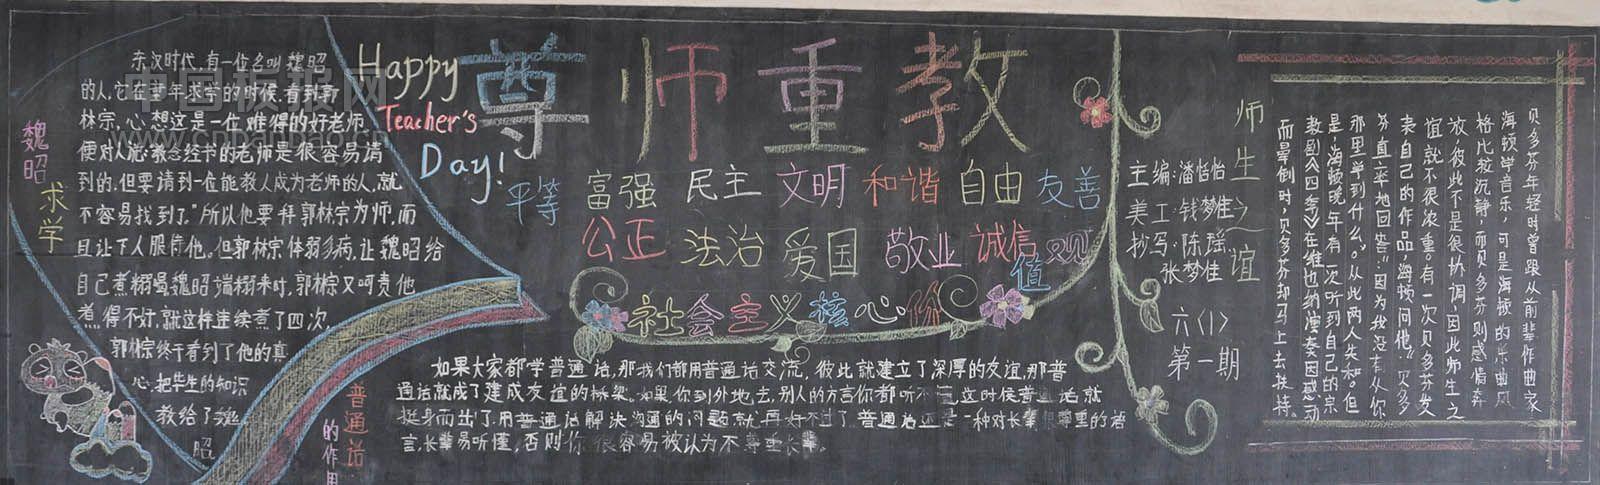 魏昭求学
东汉时代,有一位名叫魏昭
的人,它在童年求学的时候,看到郭
林宗,心想这是一位难得的好老师
便对人说:教念经书的老师是很容易请
到的,但要请到一位能教人成为老师的人,就
不容易找到了。"所以他要拜郭林宗为师,而
且让下人服侍他。但郭林宗体弱多病,让魏昭给
自己煮粥喝魏昭端粥来时,郭林宗又呵责他
煮得不好,就这样连续煮了四次,
郭林宗终于看到了他的真
心,把毕生的知识
教给了魏
昭
Happy
Teacher's
Day!
尊师重教
平等 富强 民主 文明 和谐 自由 友善
公正 法治 爱国 敬业 诚信
社会主义核心价值观
普通话
的作用
如果大家都学普通话,那我们都用普通话交流,彼此就建立了深厚的友谊,那普
通话就成了建成友谊的桥梁。如果你到外地去,别人的方言你都听不懂这时候普通话就
挺身而出了用普通话解决沟通的问题就再好不过了普通话还是一种对长辈很尊重的语
言,长辈易听懂,否则你很容易被认为不尊重长辈。
主编:潘恺怡
美工:钱梦佳
抄写:陈瑶
张梦佳
六(1)
第一期
师生之谊
贝多芬年轻时曾跟从前辈作曲家
海顿学音乐,可是海顿的乐曲风
格比较沉静,而贝多芬则感情奔
放,彼此不是很协调,因此师生之
谊就不很浓重。有一次贝多芬发
表自己的作品,海顿问他:"贝多
芬直率地回答:"因为我没有从你
那里学到什么。"从此两人失和。但
是海顿晚年有一次听到自己的宗
教剧《四季》在维也纳演奏因感动
而晕倒时,贝多芬却马上去扶持。
中国板报网